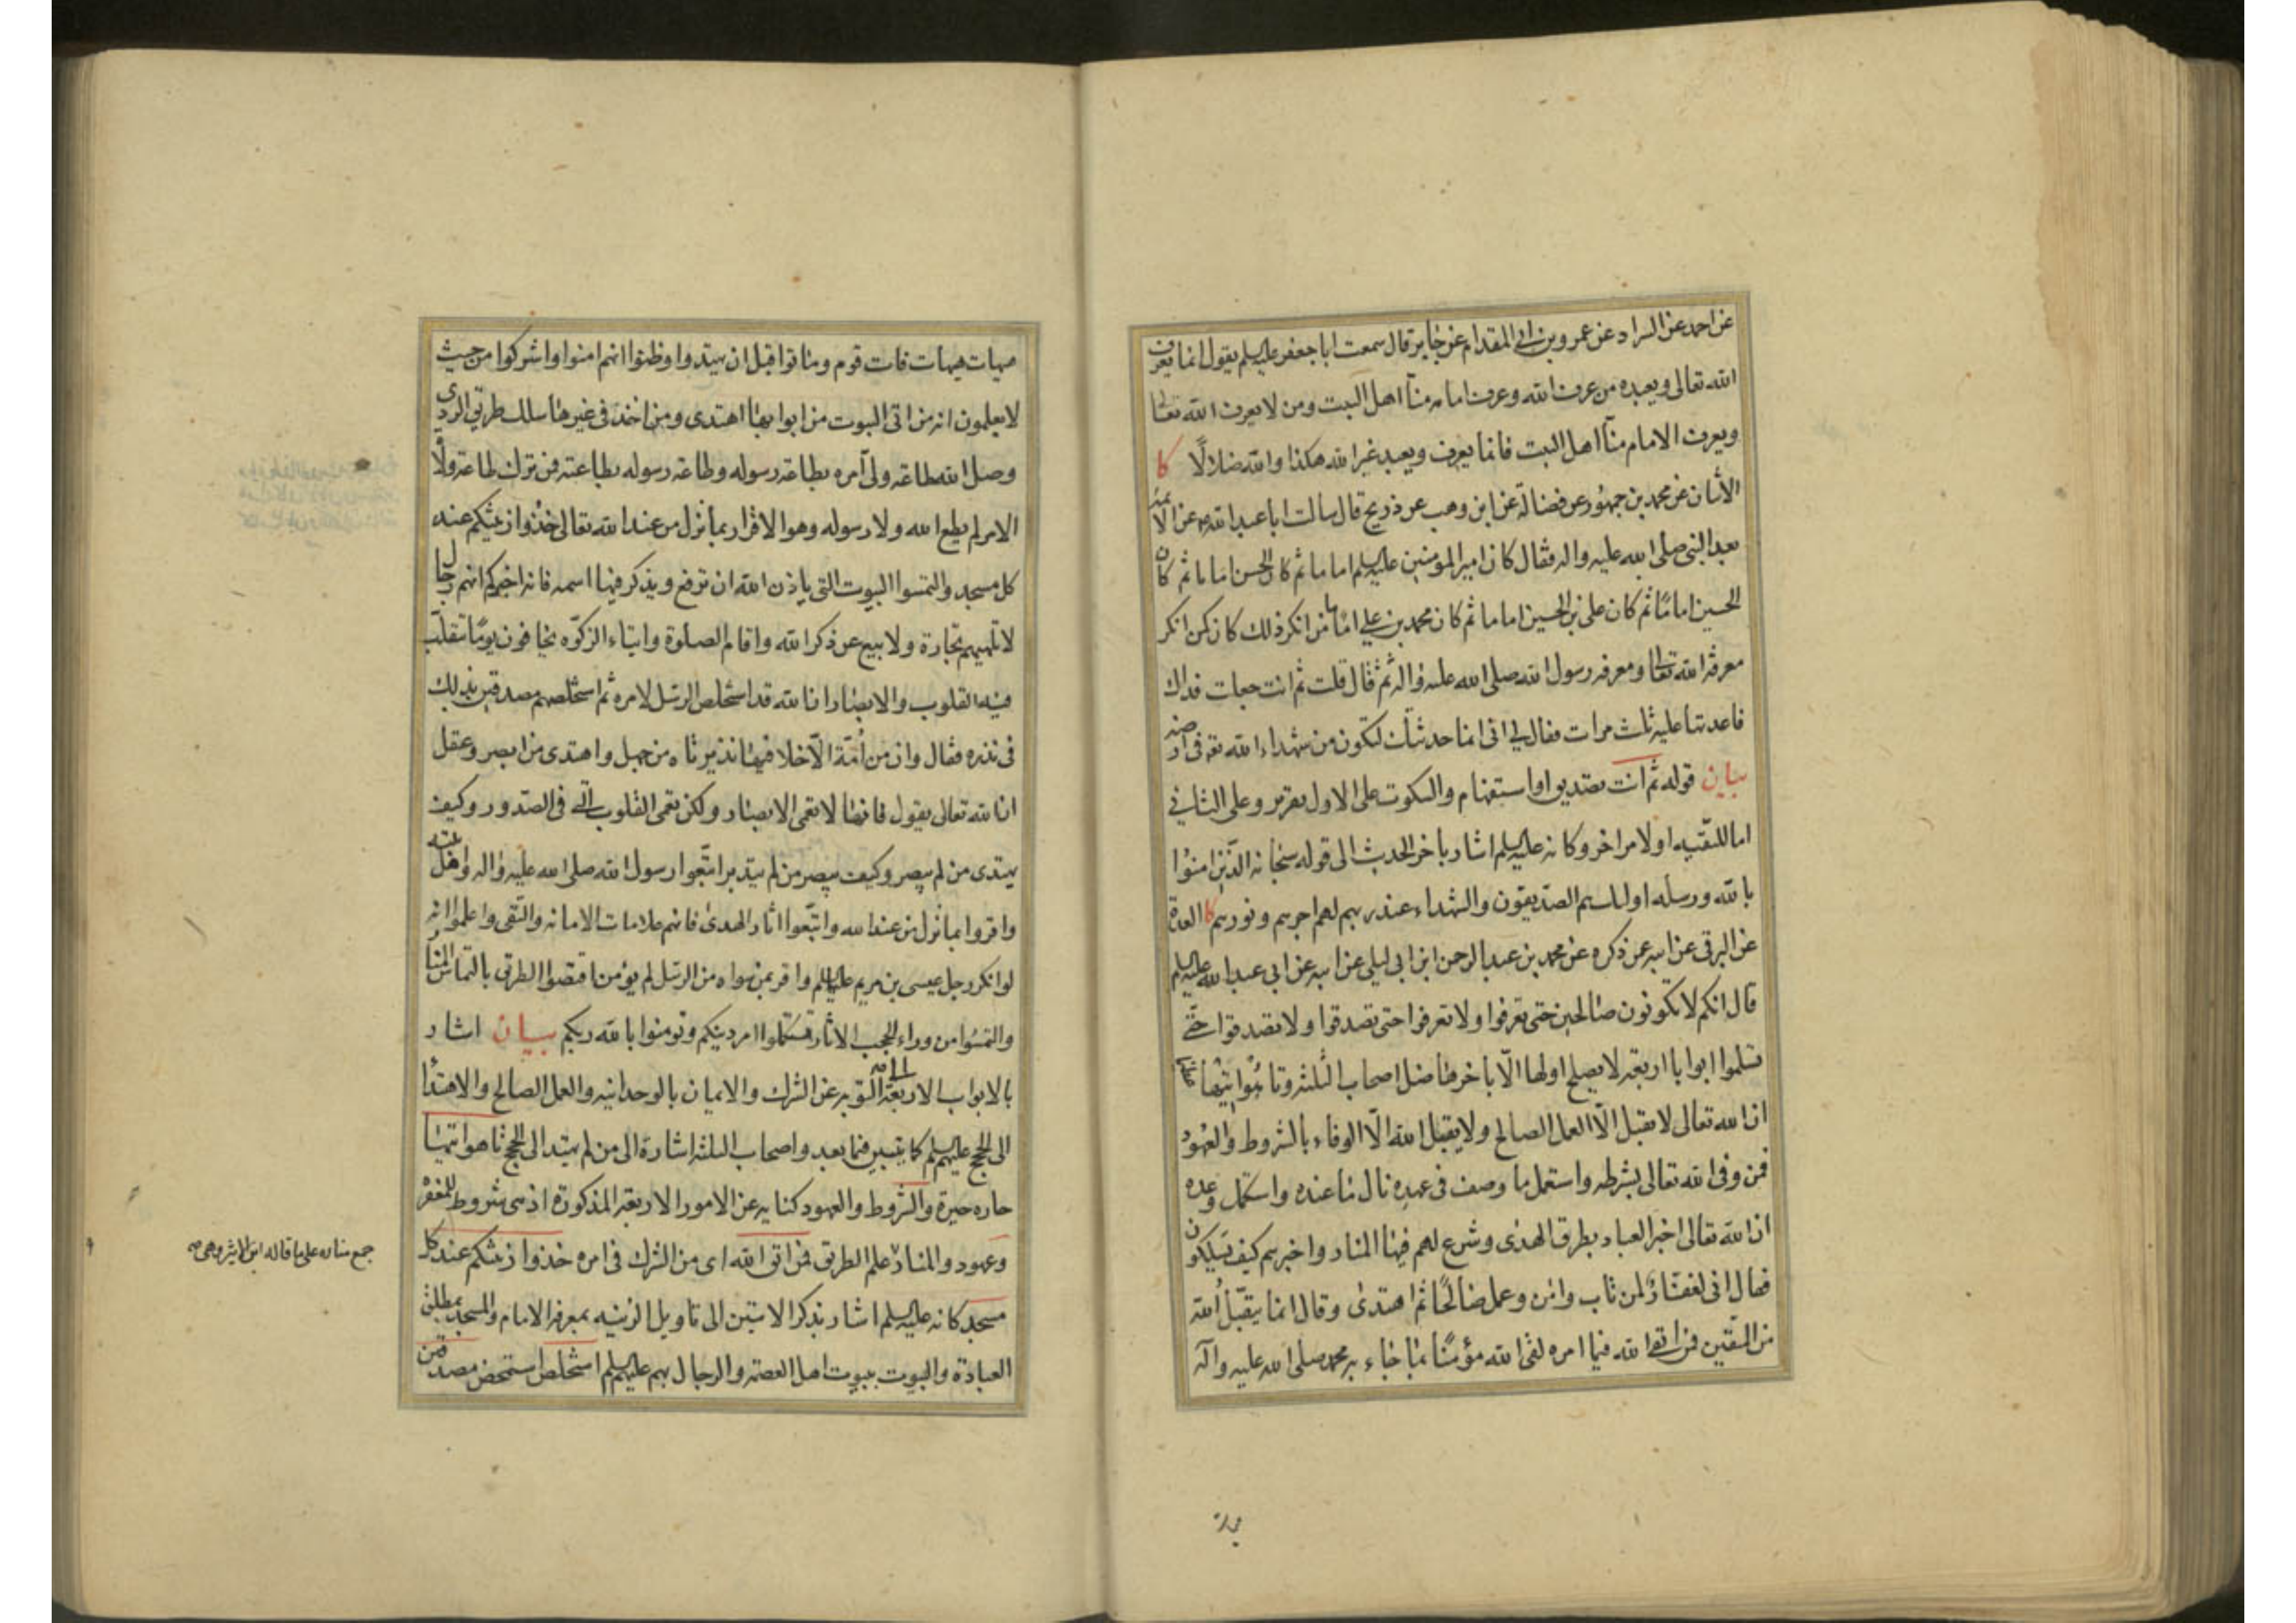 عن احمد عن السراد عن عمرو بن ابي المقدام عن جابر قال سمعت ابا جعفر عليه السلم يقول انما يعرف
الله تعالى ويعبده من عرف الله وعرف امامه منا اهل البيت ومن لا يعرف الله تعالى
ويعرف الامام منا اهل البيت فانما يعرف ويعبد غير الله هكذا والله ضلالًا كا
الأثنان عن محمد بن جمهور عن فضالة عن ابن وهب عن ذريح قال سالت ابا عبد الله ع عن الائمة
بعد النبي صلى الله عليه واله فقال كان امير المومنين عليه السلم اماما ثم كان الحسن اماما ثم كان
الحسين اماما ثم كان على بن الحسين اماما ثم كان محمد بن علي اماما من انكر ذلك كان كمن انكر
معرفة الله تعالى ومعرفة رسول الله صلى الله عليه واله ثم قال قلت ثم انت جعلت فداك
فاعدتها عليه ثلث مرات فقال لي انى انما حدثتك لتكون من شهداء الله تع فى ارضه
بيان قوله ثم انت تصديق او استفهام والسكوت على الاول تقرير وعلى الثاني
اما للتقيه او لامر اخر وكانه عليه السلم اشار باخر الحديث الى قوله سبحانه الذين امنوا
بالله ورسله اولئك هم الصديقون والشهداء عند ربهم لهم اجرهم ونورهم كا العدة
عن البرقى عن ابيه عمن ذكره عن محمد بن عبد الرحمن ابن ابى ليلى عن ابيه عن ابى عبد الله عليه السلم
قال انكم لا تكونون صالحين حتى تعرفوا ولا تعرفوا حتى تصدقوا ولا تصدقوا حتى
تسلموا ابوابا اربعة لا يصلح اولها الّا باخرها ضل اصحاب الثلثة وتاهوا تيها عظيما
ان الله تعالى لا يقبل الّا العمل الصالح ولا يقبل الله الّا الوفاء بالشروط والعهود
فمن وفى الله تعالى بشرطه واستعمل ما وصف فى عهده نال ما عنده واستكمل وعده
ان الله تعالى اخبر العباد بطرق الهدى وشرع لهم فيها المنار واخبرهم كيف يسلكون
فقال انى لغفار لمن تاب وامن وعمل صالحًا ثم اهتدى وقال انما يتقبل الله
من المتقين فمن اتقى الله فيما امره لقى الله مؤمنًا بما جاء به محمد صلى الله عليه واله
هيهات هيهات فات قوم وماتوا قبل ان يهتدوا وظنوا انهم امنوا واشركوا من حيث
لا يعلمون انه من اتى البيوت من ابوابها اهتدى ومن اخذ فى غيرها سلك طريق الردى
وصل الله طاعة ولى امره بطاعة رسوله وطاعة رسوله بطاعته فمن ترك طاعة ولاة
الامر لم يطع الله ولا رسوله وهو الاقرار بما نزل من عند الله تعالى خذوا زينتكم عند
كل مسجد والتمسوا البيوت التى ياذن الله ان ترفع ويذكر فيها اسمه فانه اخبركم انهم رجال
لا تلهيهم تجارة ولا بيع عن ذكر الله واقام الصلوة وايتاء الزكوة يخافون يومًا تتقلب
فيه القلوب والابصار ان الله قد استخلص الرسل لامره ثم استخلصهم مصدقين بذلك
فى نذره فقال وان من أمة الّا خلا فيها نذير تاه من جهل واهتدى من ابصر وعقل
ان الله تعالى يقول فانها لا تعمى الابصار ولكن تعمى القلوب التى فى الصدور وكيف
يهتدى من لم يبصر وكيف يبصر من لم يتدبر اتبعوا رسول الله صلى الله عليه واله واهل بيته
واقروا بما نزل من عند الله واتبعوا اثار الهدى فانهم علامات الامانه والتقى واعلموا انه
لو انكر رجل عيسى بن مريم عليه السلم واقر بمن سواه من الرسل لم يؤمن اقتصوا الطريق بالتماس المنار
والتمسوا من وراء الحجب الاثار تستكملوا امر دينكم وتومنوا بالله ربكم بيان اشار
بالابواب الاربعة الى التوبه عن الشرك والايمان بالوحدانيه والعمل الصالح والاهتداء
الى الحجج عليهم السلم كما يتبين فيما بعد واصحاب الثلثة اشارة الى من لم يهتد الى الحجج تاهوا تيها
حاروا حيرة والشروط والعهود كناية عن الامور الاربعة المذكورة اذ هى شروط للمغفرة
وعهود والمنار علم الطريق فمن اتقى الله اى من الشرك فى امره خذوا زينتكم عند كل
مسجد كانه عليه السلم اشار بذكر الايتين الى تاويل الزينه بمعرفة الامام والمسجد بمطلق
العبادة والبيوت ببيوت اهل العصمة والرجال بهم عليهم السلم استخلص استخص مصدقين
جمع مناره على ما قاله ابن الاثير وهى